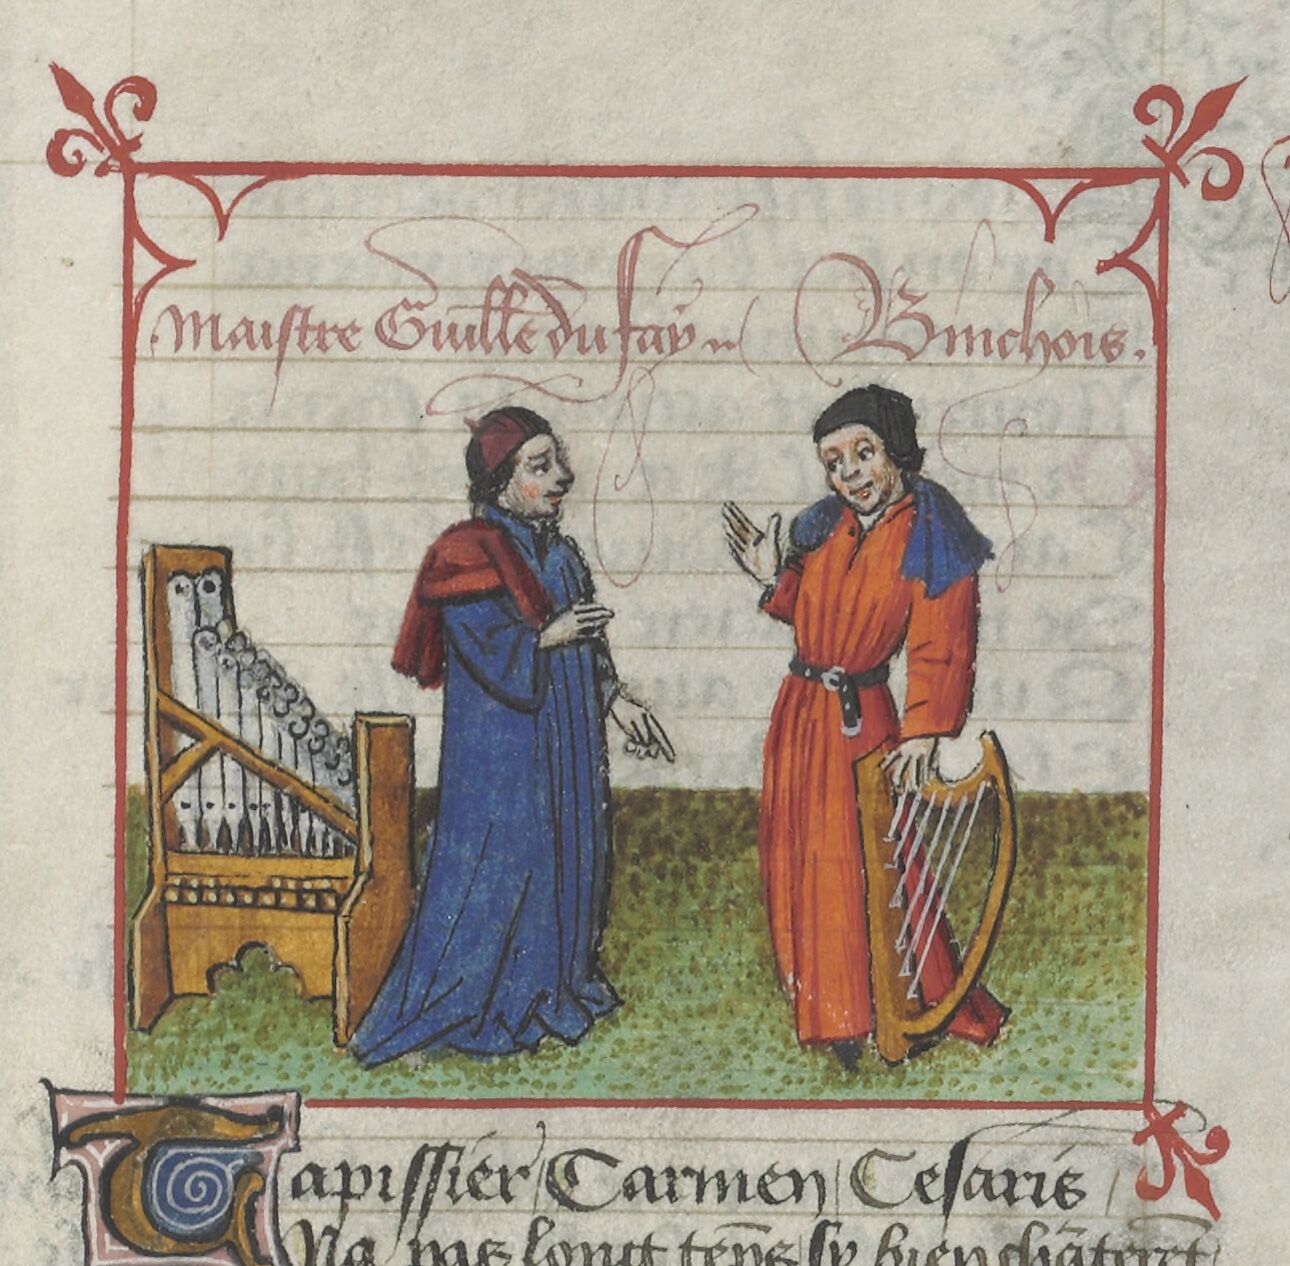 Maistre Guillẽ du fay Binchois.
Tapissier / Carmen / Cesaris /
Na pas longt tẽps sy bien chãterẽt